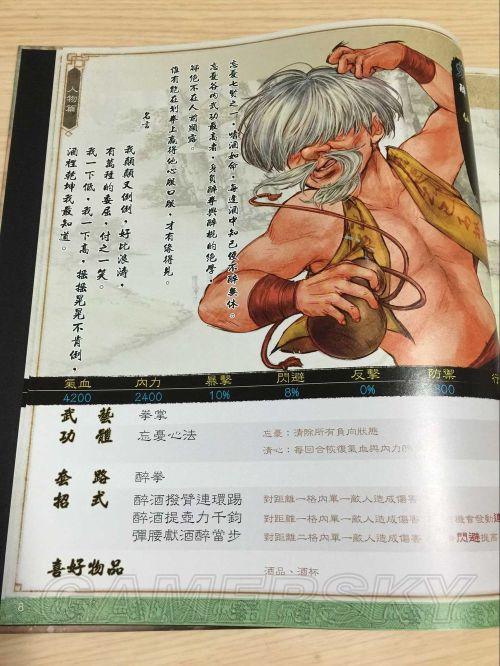 人物篇
忘憂七賢之一,嗜酒如命,每逢酒中知己便不醉無休。
忘憂谷內武功最高者,身負醉拳與醉棍的絕學,
卻絕不在人前顯露。
唯有能在划拳上贏得他心服口服,才有緣得見。
名言
我顛顛又倒倒,好比浪濤,
有萬種的委屈,付之一笑。
我一下低,我一下高,搖搖晃晃不肯倒,
酒裡乾坤我最知道。
氣血 內力 暴擊 閃避 反擊 防禦 行
4200 2400 10% 8% 0% 300
武藝 拳掌
功體 忘憂心法 忘憂:清除所有負向狀態
清心:每回合恢復氣血與內力
套路 醉拳
招式 醉酒撥臂連環踢 對距離一格內單一敵人造成傷害
醉酒提壺力千鈞 對距離一格內單一敵人造成傷害 機會發動
彈腰獻酒醉當步 對距離二格內單一敵人造成傷害 閃避提高
喜好物品 酒品、酒杯
8
GAMERSKY